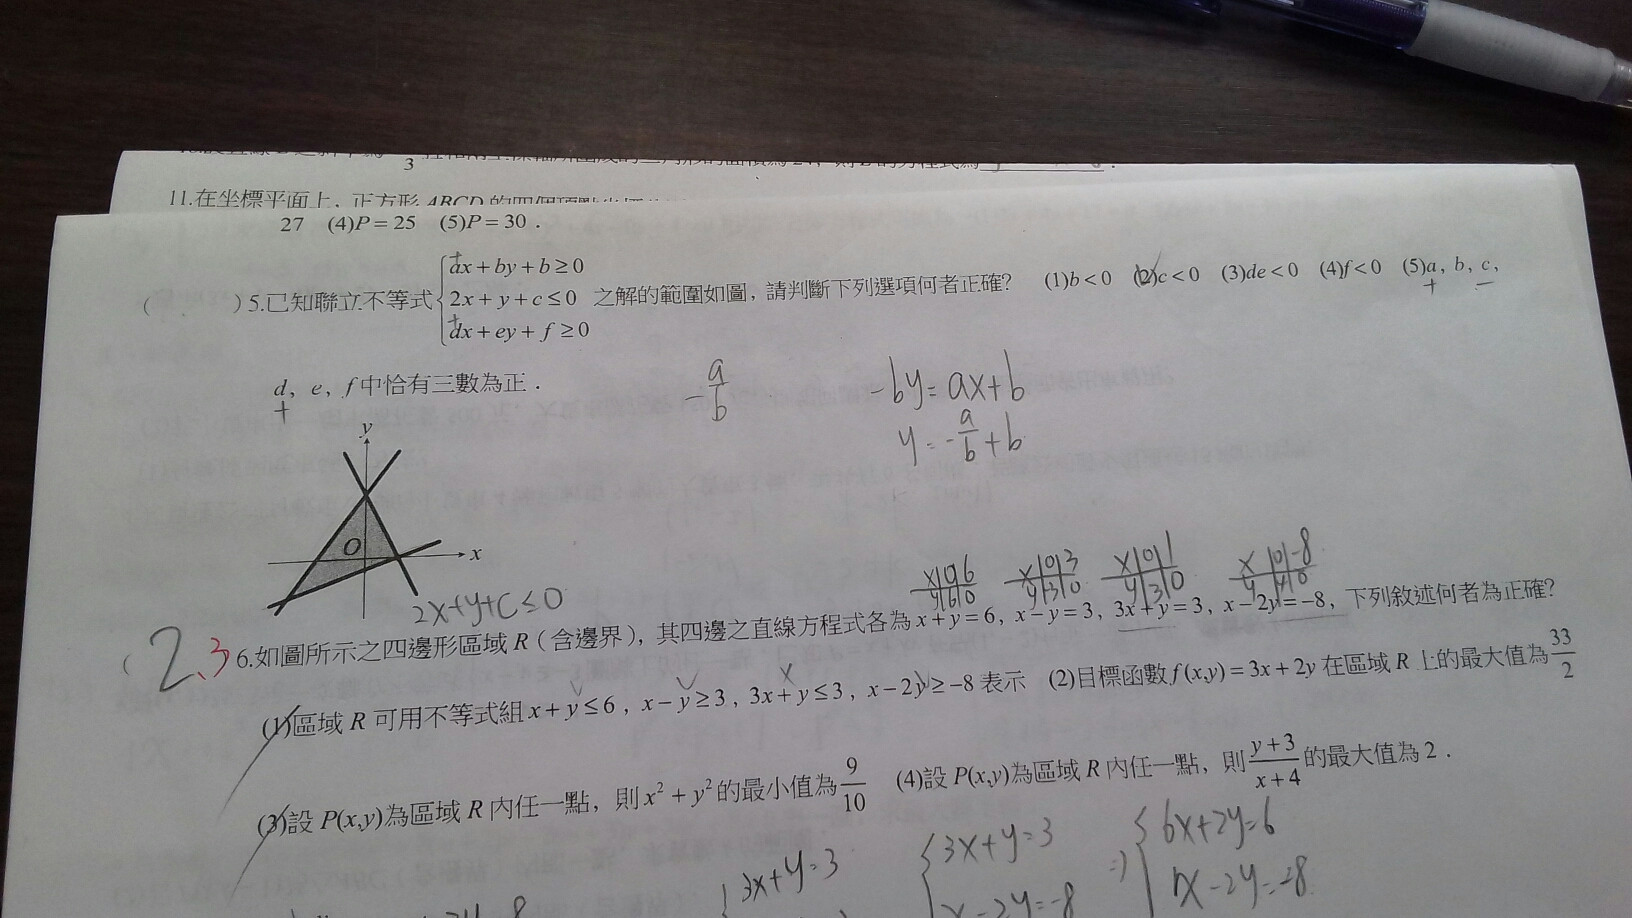 3
11.在坐標平面上，正方形 ABCD 的四個頂點坐標
27 (4)P = 25 (5)P = 30．
( )5.已知聯立不等式 ax + by + b ≥ 0 之解的範圍如圖，請判斷下列選項何者正確？ (1)b < 0 (2)c < 0 (3)de < 0 (4)f < 0 (5)a，b，c，
2x + y + c ≤ 0
dx + ey + f ≥ 0
+ + + −
d，e，f 中恰有三數為正．
+
−a/b
−by = ax + b
y = −a/b + b
y
O
x
2x+y+c ≤ 0
x 0 6
y 6 0
x 0 3
y 3 0
x 0 1
y 3 0
x 0 −8
y 4 0
( 2、3 6.如圖所示之四邊形區域 R（含邊界），其四邊之直線方程式各為 x + y = 6，x − y = 3，3x + y = 3，x − 2y = −8，下列敘述何者為正確？
(1)區域 R 可用不等式組 x + y ≤ 6，x − y ≥ 3，3x + y ≤ 3，x − 2y ≥ −8 表示 (2)目標函數 f(x,y) = 3x + 2y 在區域 R 上的最大值為 33/2
(3)設 P(x,y)為區域 R 內任一點，則 x² + y² 的最小值為 9/10 (4)設 P(x,y)為區域 R 內任一點，則 y+3/x+4 的最大值為 2．
3x+y=3
3x+y=3
x−2y=−8
⇒
6x+2y=6
x−2y=−8